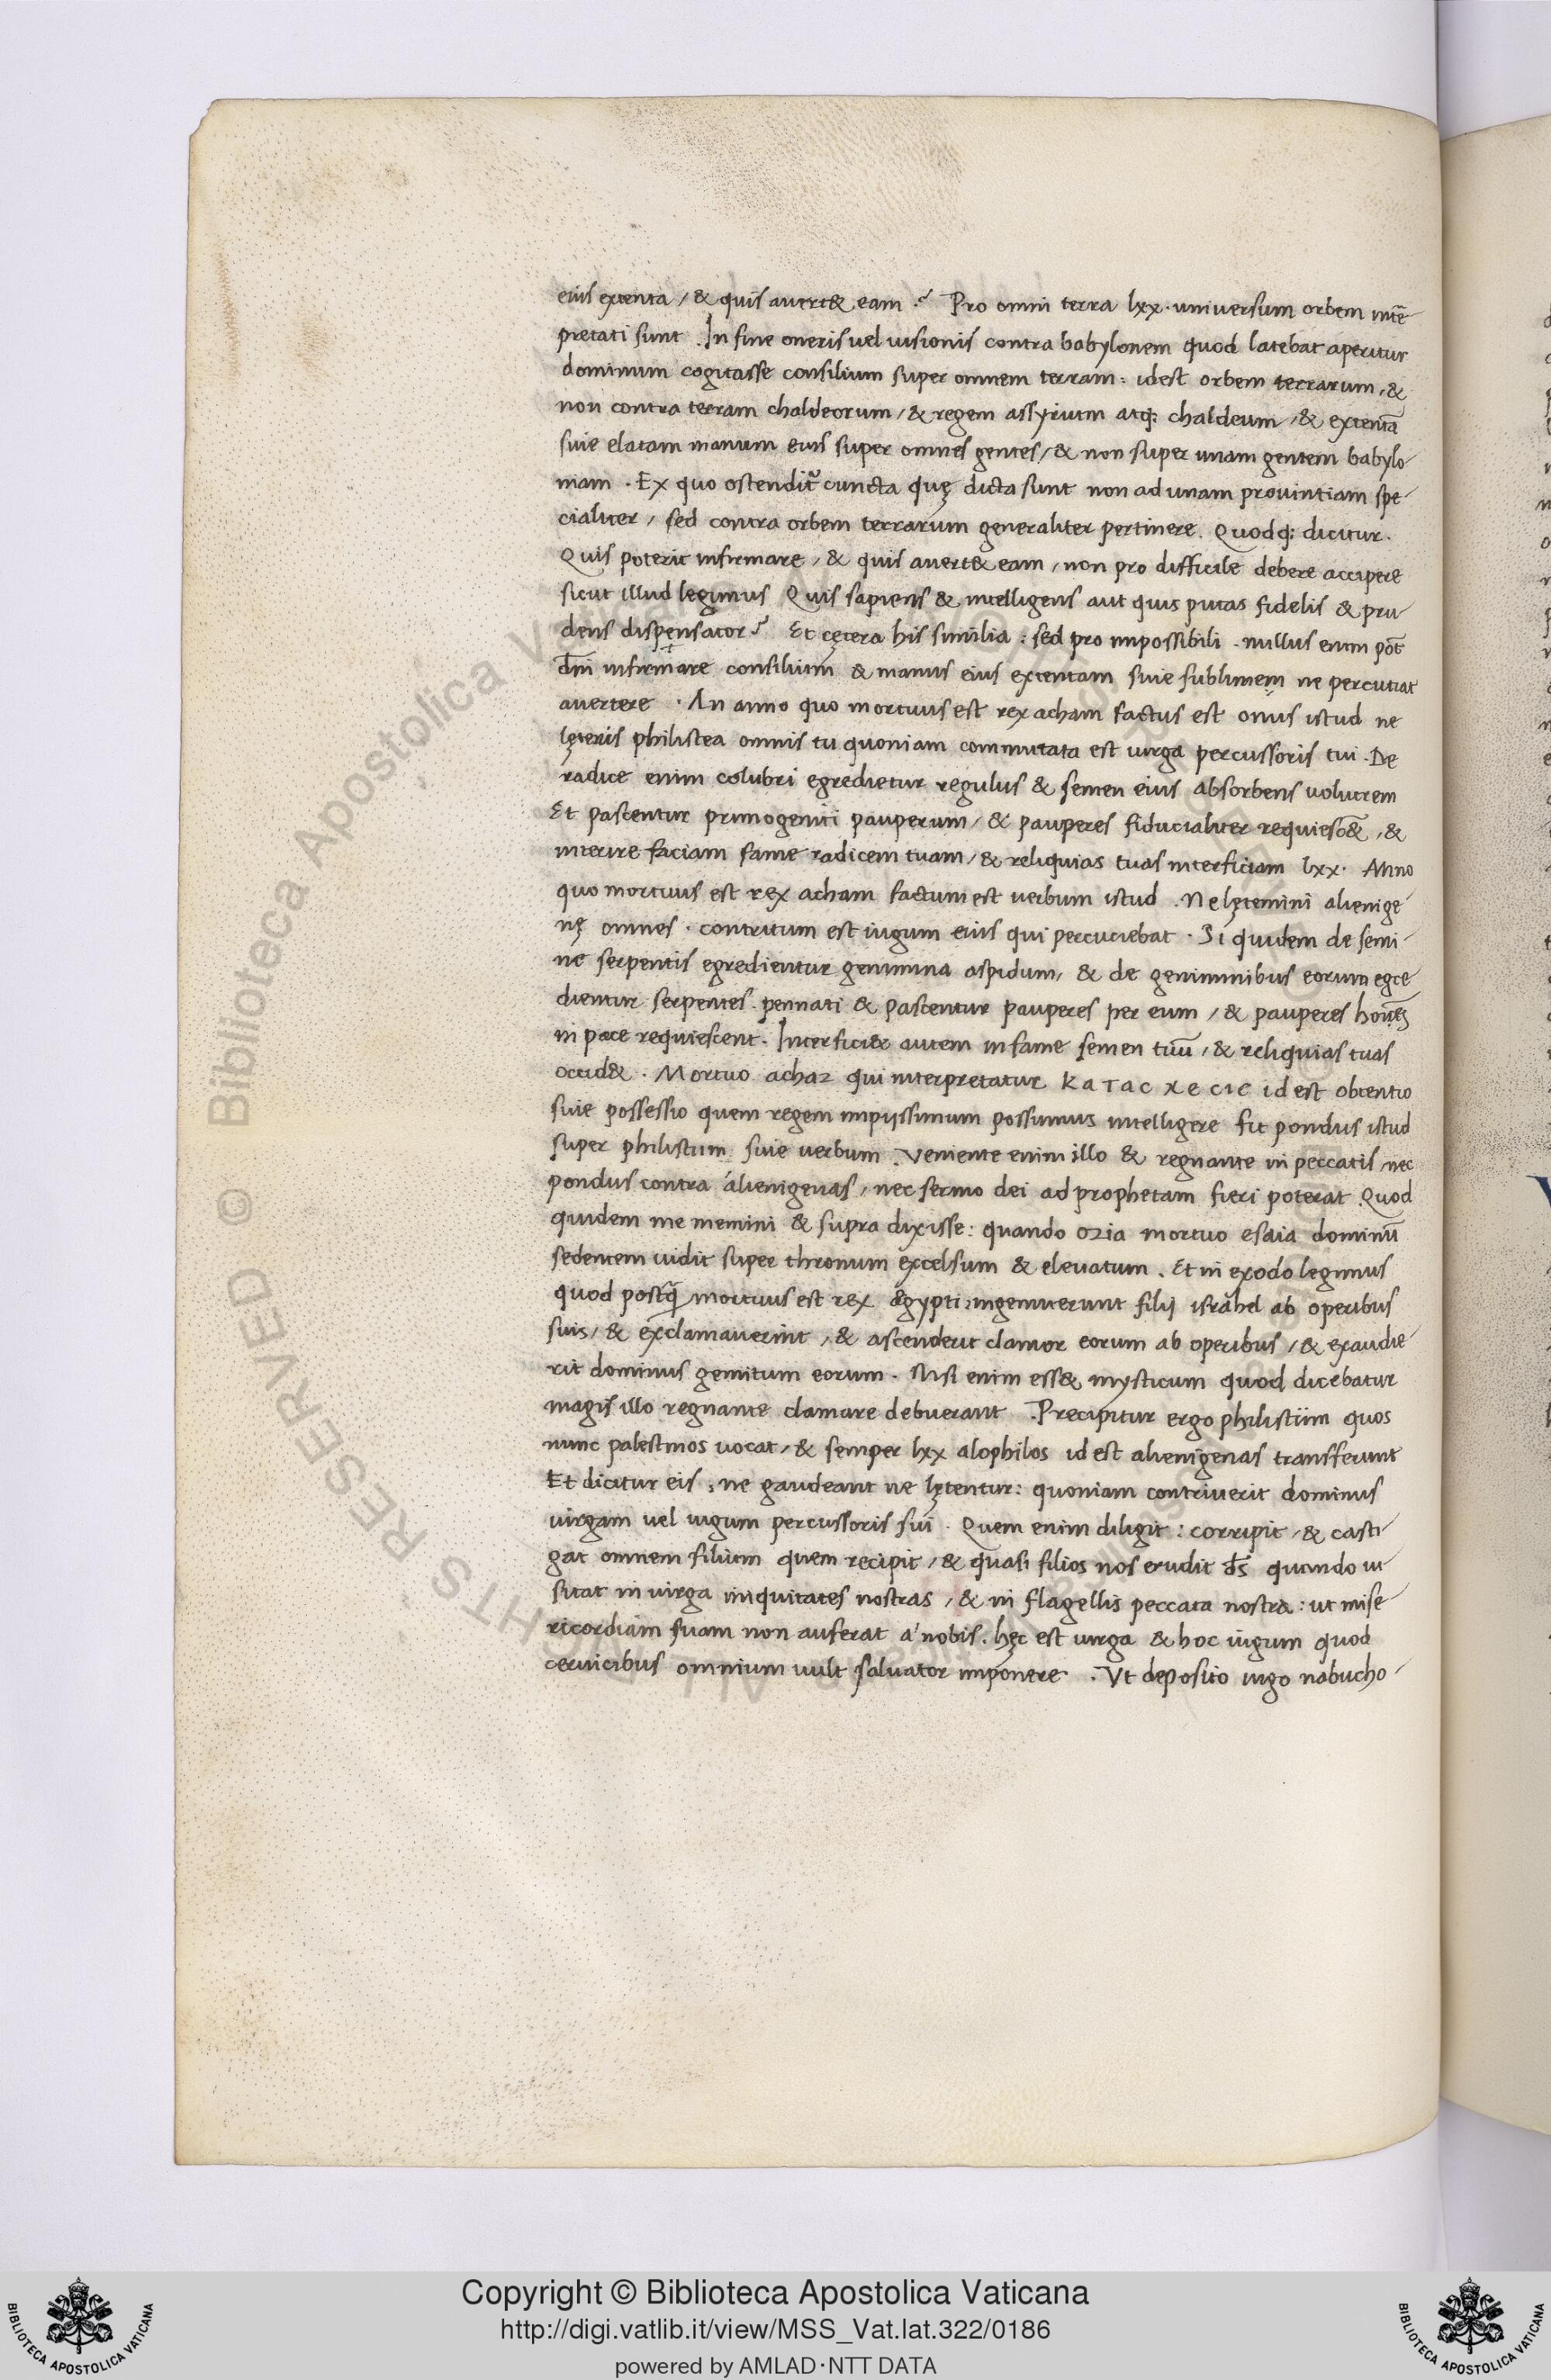 eius extenta / & quis auert& eam ? Pro omni terra lxx · uniuersum orbem int̄e-
pretati sunt . In fine oneris uel uisionis contra babylonem quod latebat aperitur
dominum cogitasse consilium super omnem terram : idest orbem terrarum , &
non contra terram chaldeorum / & regem assyrium atq; chaldeum / & extentā
siue elatam manum eius super omnes gentes / & non super unam gentem babylo-
niam . Ex quo ostendit᷑ cuncta quę dicta sunt non ad unam prouintiam spe-
cialiter / sed contra orbem terrarum generaliter pertinere . Quodq; dicitur .
Quis poterit infirmare / & quis auert& eam / non pro difficile debere accipere
sicut illud legimus Quis sapiens & intelligens aut quis putas fidelis & pru-
dens dispensator ? Et cętera his similia : sed pro impossibili . nullus enim pōt
dn̄i infirmare consilium & manus eius extentam siue sublimem ne percutiat
auertere . An anno quo mortuus est rex acham factus est onus istud ne
lęteris philistea omnis tu quoniam commutata est uirga percussoris tui . De
radice enim colubri egredietur regulus & semen eius absorbens uolucrem
Et pascentur primogeniti pauperum / & pauperes fiducialiter requiesc̄& , &
interire faciam fame radicem tuam / & reliquias tuas interficiam lxx · Anno
quo mortuus est rex acham factum est uerbum istud . Ne lętemini alienige
nę omnes . contritum est iugum eius qui percuciebat . Si quidem de semi-
ne serpentis egredientur genimina aspidum , & de geniminibus eorum egre-
dientur serpentes pennati & pascentur pauperes per eum / & pauperes
in pace requiescent . Interfici& autem in fame semen tuū / & reliquias tuas
occid& . Mortuo achaz qui interpretatur κατασχεσιϲ id est obtentio
siue possessio quem regem impijssimum possumus intelligere fit pondus istud
super philistum siue uerbum . Veniente enim illo & regnante in peccatis / nec
pondus contra alienigenas / nec sermo dei ad prophetam fieri poterat . Quod
quidem me memini & supra dixisse : quando ozia mortuo esaia dominū
sedentem uidit super thronum excelsum & eleuatum . Et in exodo legimus
quod postq̄ mortuus est rex ægypti ingemuerunt filij israhel ab operibus
suis / & exclamauerint / & ascenderit clamor eorum ab operibus / & exaudie-
rit dominus gemitum eorum . Nisi enim ess& mysticum quod dicebatur
magis illo regnante clamare debuerant . Precipitur ergo philistiim quos
nunc palestinos uocat / & semper lxx alophilos id est alienigenas transferunt
Et dicitur eis : ne gaudeant ne lętentur : quoniam contriuerit dominus
uirgam uel iugum percussoris sui . Quem enim diligit : corripit / & casti-
gat omnem filium quem recipit / & quasi filios nos erudit d̄s quando ui-
sitat in uirga iniquitates nostras / & in flagellis peccata nostra : ut mise-
ricordiam suam non auferat a' nobis . hęc est uirga & hoc iugum quod
ceruicibus omnium uult saluator imponere . Vt deposito iugo nabucho-
Copyright © Biblioteca Apostolica Vaticana
http://digi.vatlib.it/view/MSS_Vat.lat.322/0186
powered by AMLAD·NTT DATA